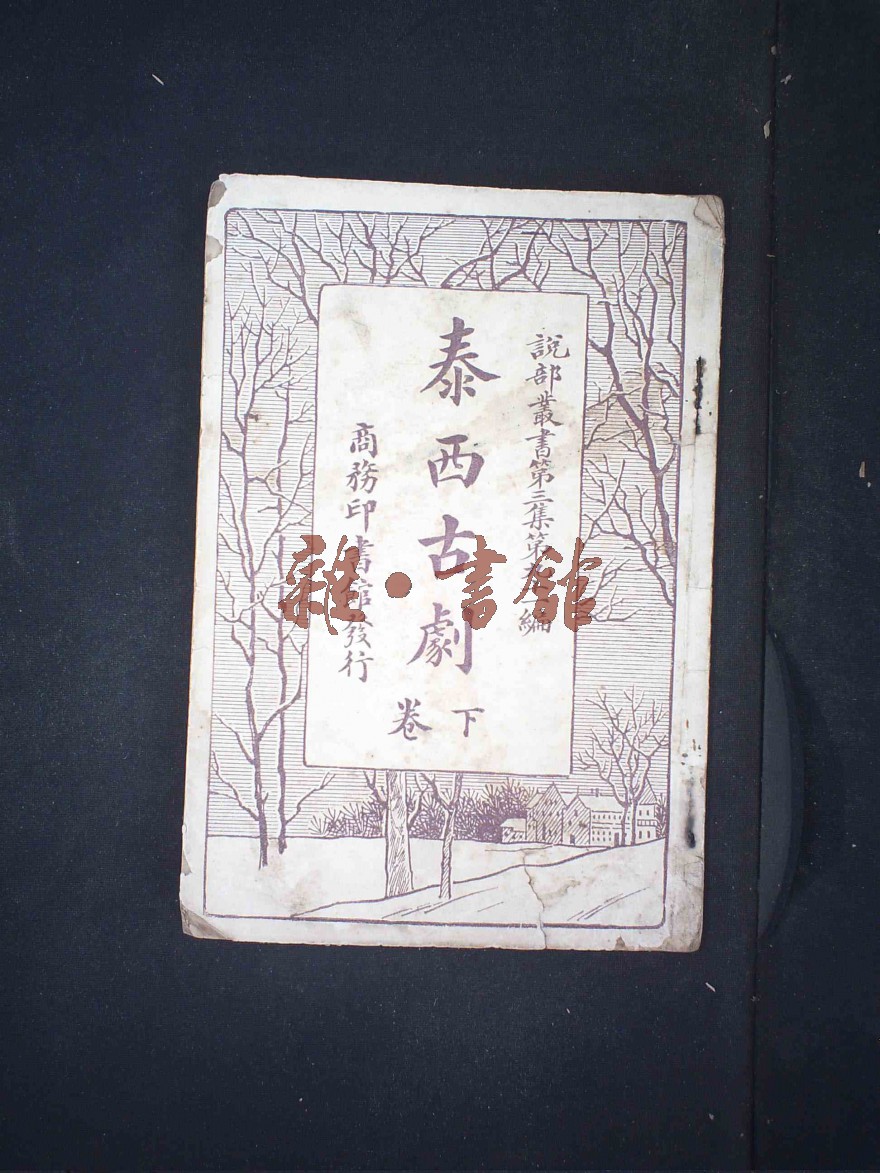 說部叢書第三集第編
泰西古劇
下卷
商務印書館發行
雜·書館